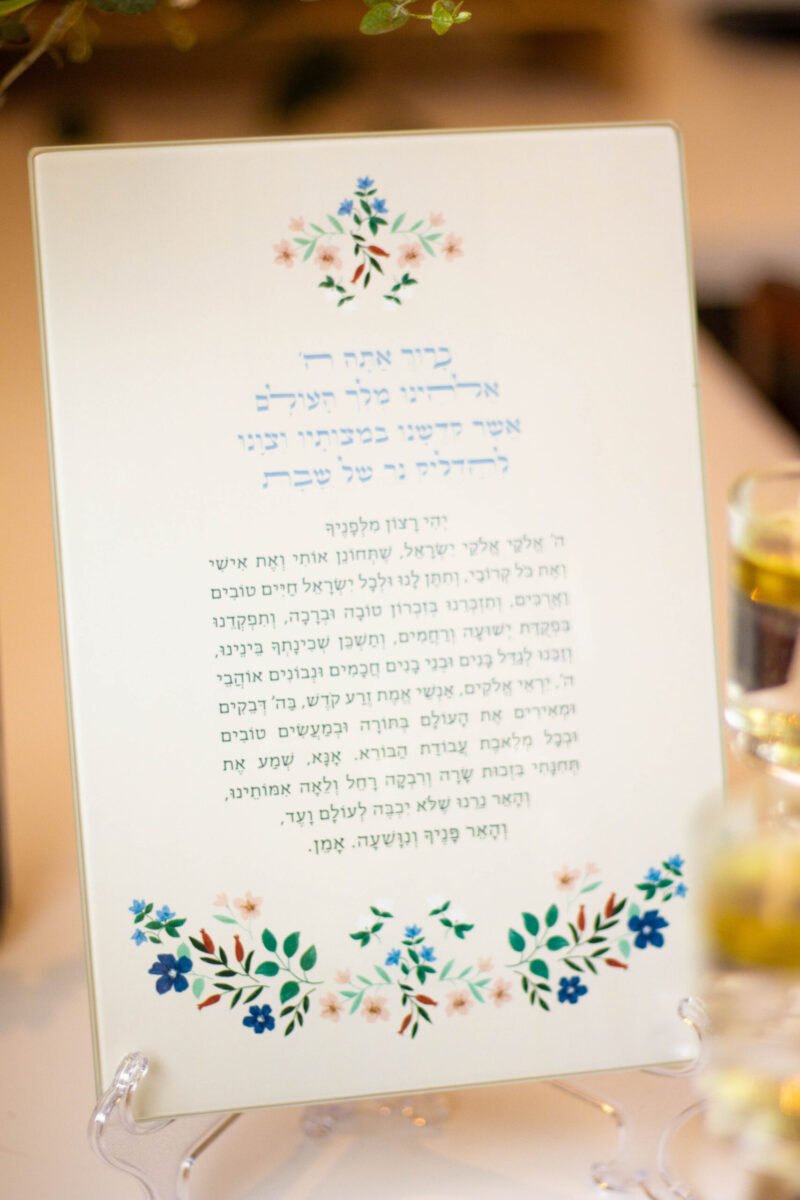 בָּרוּךְ אַתָּה ה'
אֱלֹהֵינוּ מֶלֶךְ הָעוֹלָם
אֲשֶׁר קִדְּשָׁנוּ בְּמִצְוֹתָיו וְצִוָּנוּ
לְהַדְלִיק נֵר שֶׁל שַׁבָּת
יְהִי רָצוֹן מִלְּפָנֶיךָ
ה' אֱלֹקַי אֱלֹקֵי יִשְׂרָאֵל, שֶׁתְּחוֹנֵן אוֹתִי וְאֶת אִישִׁי
וְאֶת כֹּל קְרוֹבַי, וְתִתֶּן לָנוּ וּלְכָל יִשְׂרָאֵל חַיִּים טוֹבִים
וַאֲרֻכִּים, וְתִזְכְּרֵנוּ בְּזִכְרוֹן טוֹבָה וּבְרָכָה, וְתִפְקְדֵנוּ
בִּפְקֻדַּת יְשׁוּעָה וְרַחֲמִים, וְתַשְׁכֵּן שְׁכִינָתְךָ בֵּינֵינוּ,
וְזַכֵּנוּ לְגַדֵּל בָּנִים וּבְנֵי בָנִים חֲכָמִים וּנְבוֹנִים אוֹהֲבֵי
ה', יִרְאֵי אֱלֹקִים, אַנְשֵׁי אֱמֶת זֶרַע קֹדֶשׁ, בַּה' דְּבֵקִים
וּמְאִירִים אֶת הָעוֹלָם בְּתּוֹרָה וּבְמַעֲשִׂים טוֹבִים
וּבְכָל מְלֶאכֶת עֲבוֹדַת הַבּוֹרֵא. אָנָּא, שְׁמַע אֶת
תְּחִנָּתִי בִּזְכוּת שָׂרָה וְרִבְקָה רָחֵל וְלֵאָה אִמּוֹתֵינוּ,
וְהָאֵר נֵרֵנוּ שֶׁלֹּא יִכְבֶּה לְעוֹלָם וָעֶד,
וְהָאֵר פָּנֶיךָ וְנִוָּשֵׁעָה. אָמֵן.